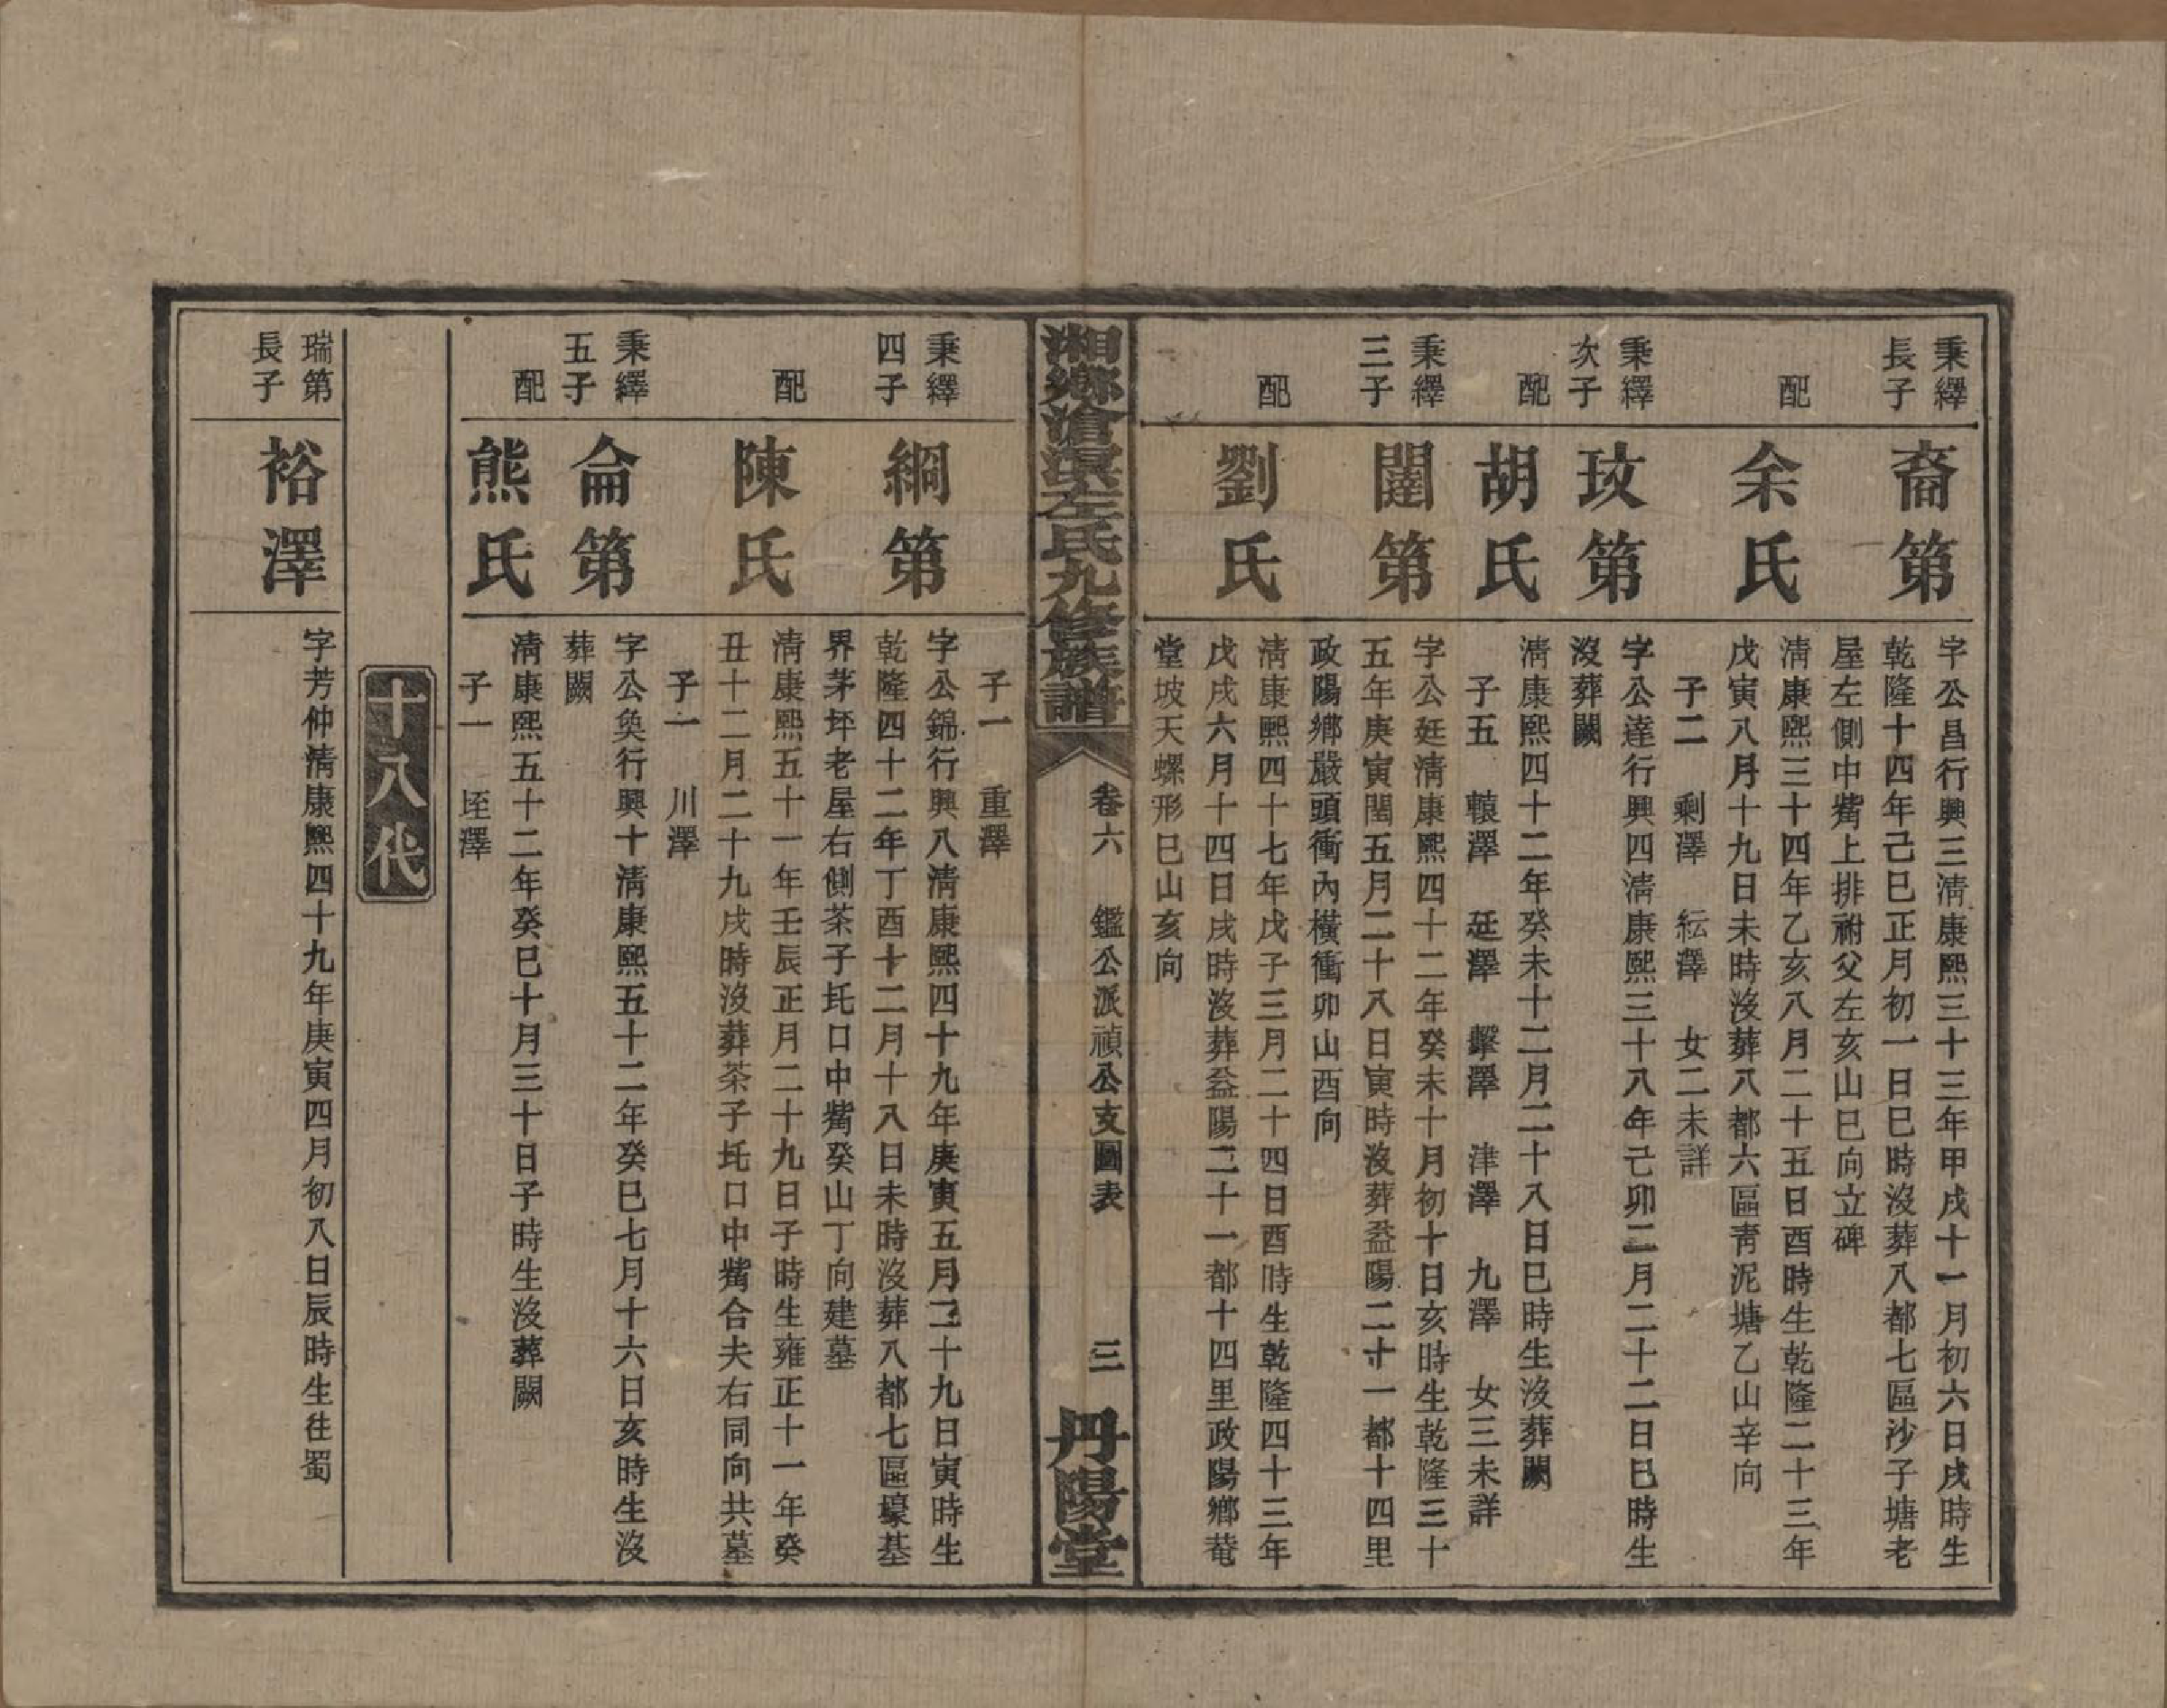 秉繹長子
裔第
字公昌行興三清康熙三十三年甲戌十一月初六日戌時生
乾隆十四年己巳正月初一日巳時沒葬八都七區沙子塘老
屋左側中觜上排祔父左亥山巳向立碑
配
余氏
清康熙三十四年乙亥八月二十五日酉時生乾隆二十三年
戊寅八月十九日未時沒葬八都六區靑泥塘乙山辛向
子二 剩澤 紜澤 女二未詳
秉繹次子
玟第
字公達行興四清康熙三十八年己卯二月二十二日巳時生
沒葬闕
配
胡氏
清康熙四十二年癸未十二月二十八日巳時生沒葬闕
子五 轅澤 廷澤 擊澤 津澤 九澤 女三未詳
秉繹三子
闈第
字公廷清康熙四十二年癸未十月初十日亥時生乾隆三十
五年庚寅閏五月二十八日寅時沒葬益陽二十一都十四里
政陽鄉嚴頭衝內橫衝卯山酉向
配
劉氏
清康熙四十七年戊子三月二十四日酉時生乾隆四十三年
戊戌六月十四日戌時沒葬益陽二十一都十四里政陽鄉菴
堂坡天螺形巳山亥向
湘鄉滄浪左氏九修族譜 卷六 鑑公派禎公支圖表 三 丹陽堂
子一 重澤
秉繹四子
綱第
字公錦行興八清康熙四十九年庚寅五月二十九日寅時生
乾隆四十二年丁酉十二月十八日未時沒葬八都七區壕基
界茅坪老屋右側茶子圫口中觜癸山丁向建墓
配
陳氏
清康熙五十一年壬辰正月二十九日子時生雍正十一年癸
丑十二月二十九戌時沒葬茶子圫口中觜合夫右同向共墓
子一 川澤
秉繹五子
侖第
字公奐行興十清康熙五十二年癸巳七月十六日亥時生沒
葬闕
配
熊氏
清康熙五十二年癸巳十月三十日子時生沒葬闕
子一 垤澤
十八代
瑞第長子
裕澤
字芳仲清康熙四十九年庚寅四月初八日辰時生往蜀